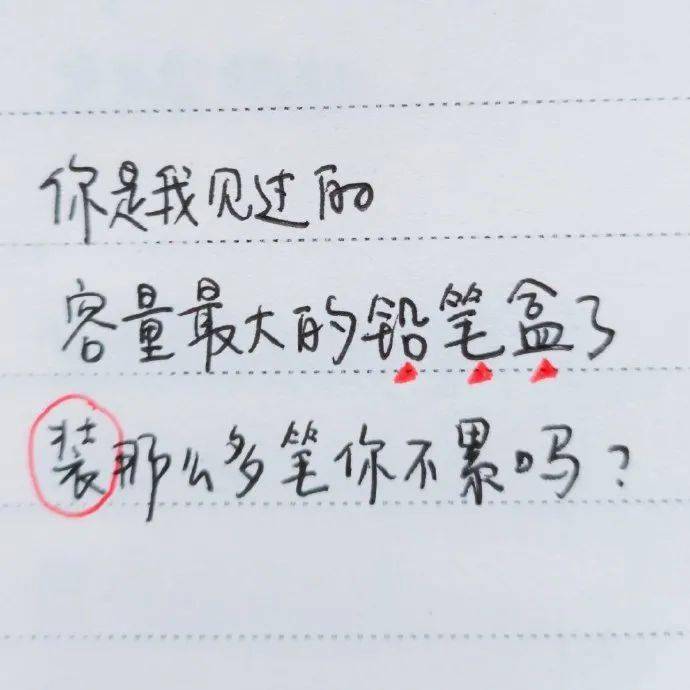 你是我见过的
容量最大的铅笔盒了
装那么多笔你不累吗？